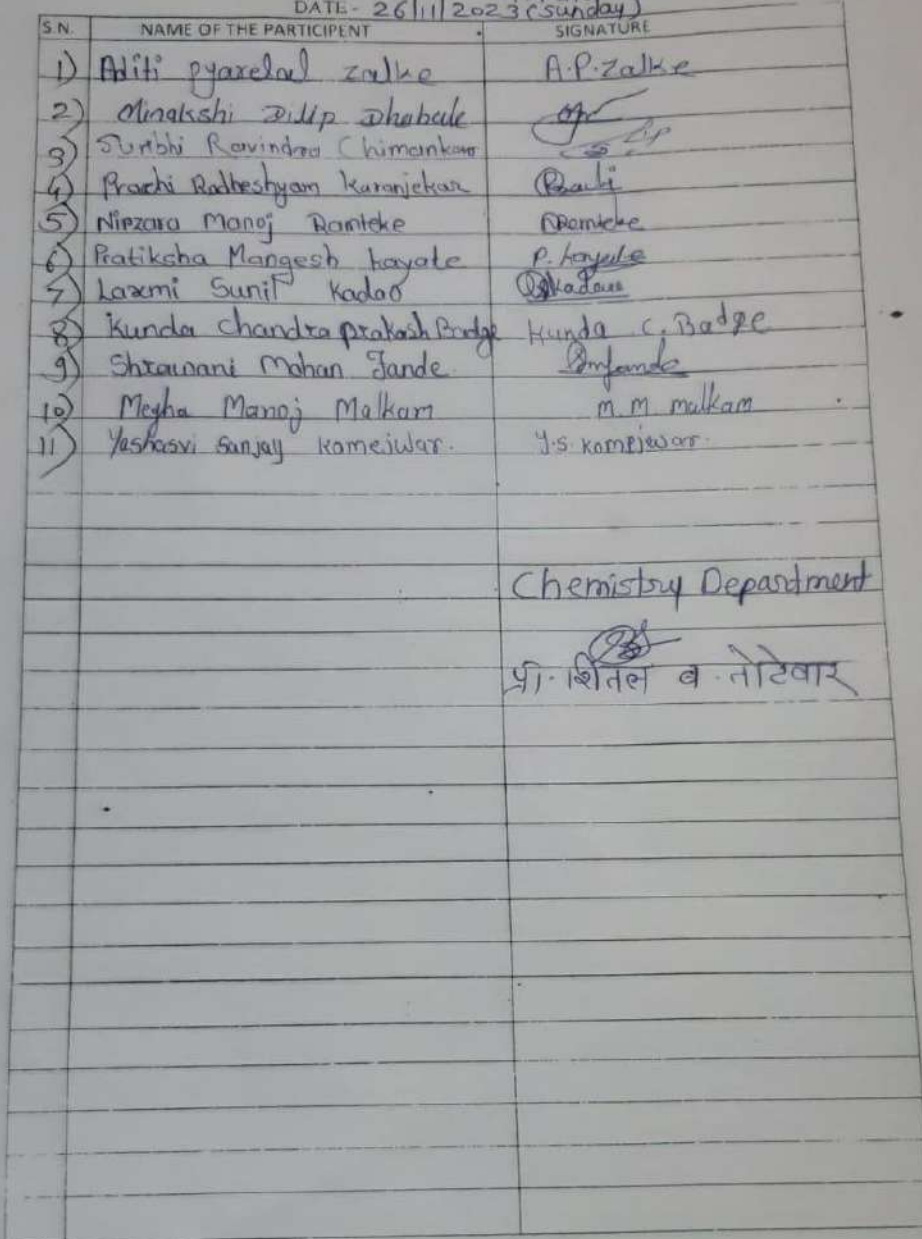 DATE - 26/11/2023 (Sunday)
S.N. NAME OF THE PARTICIPENT SIGNATURE
1) Aditi pyarelal zalke A.P.Zalke
2) Minakshi Dilip Dhabale
3) Surbhi Ravindra Chimankar
4) Prachi Radheshyam Karanjekar
5) Nirzara Manoj Ramteke NRamteke
6) Pratiksha Mangesh Kayate P. Kayate
7) Laxmi Sunil Kadao
8) Kunda Chandra prakash Badge Kunda C. Badge
9) Shrawani Mohan Jande
10) Megha Manoj Malkam M. M malkam
11) Yashasvi Sanjay Komejwar. Y.S. Komejwar.
Chemistry Department
प्रा. शितल ब. तोटेवार